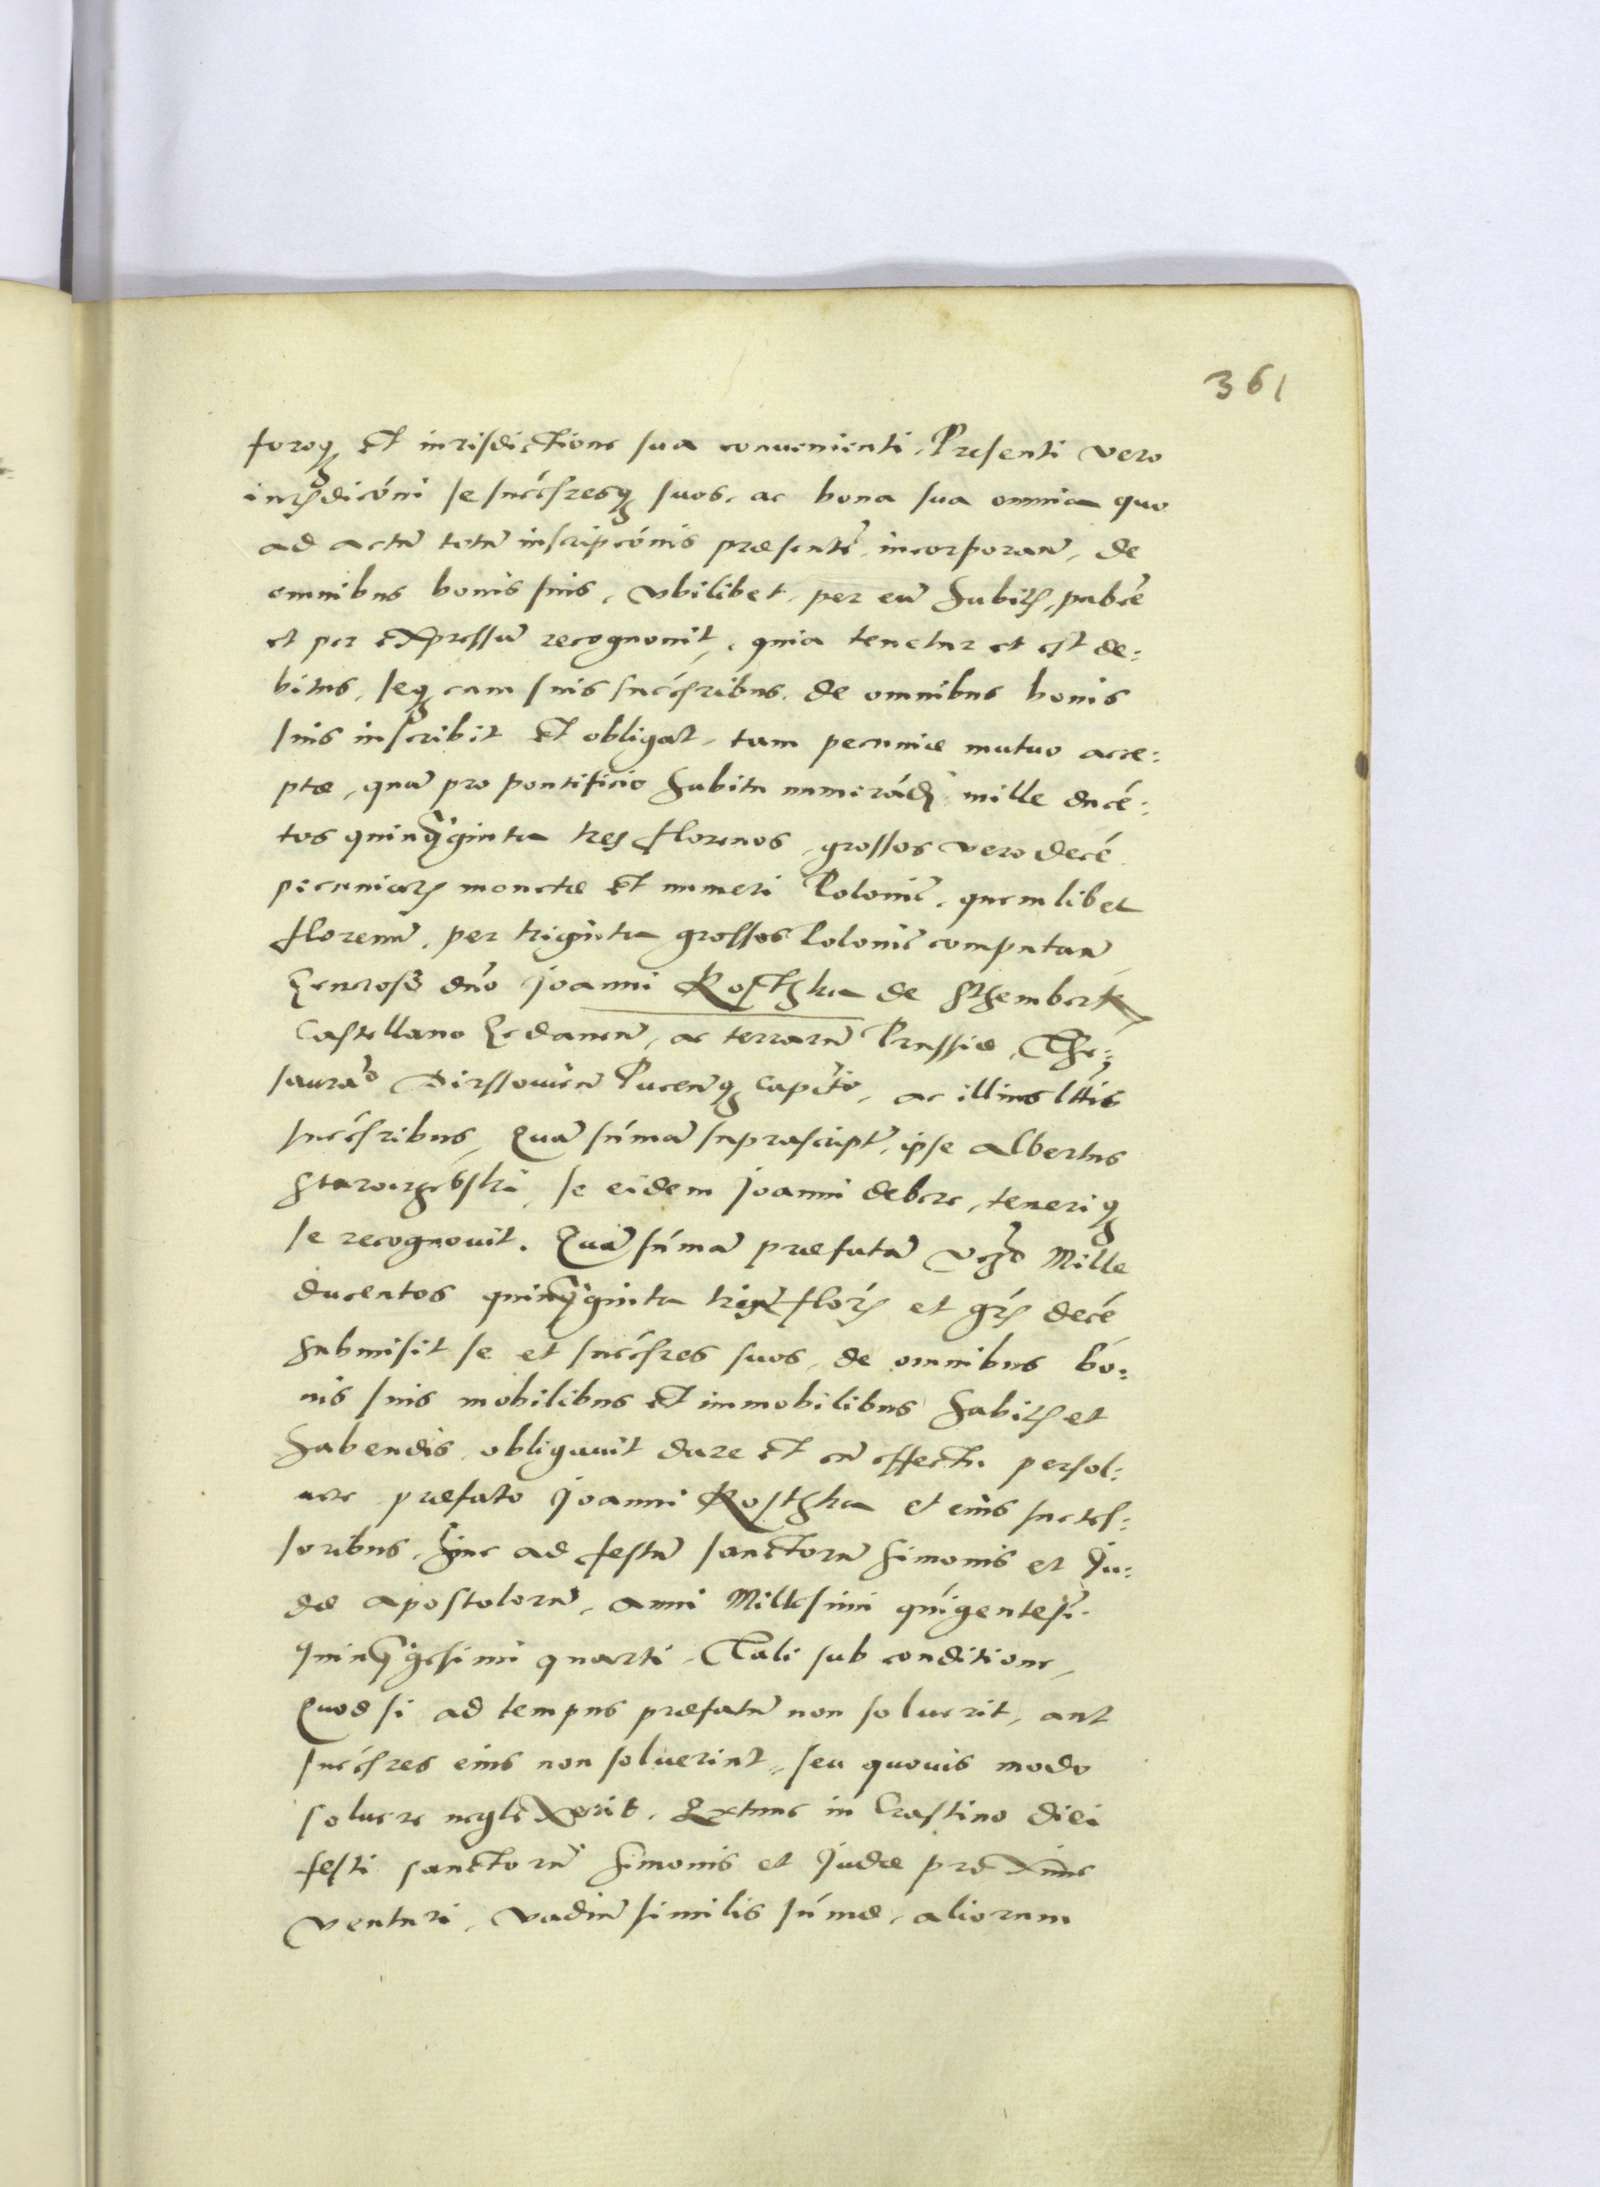 361
foroq et iurisdictione sua convenienti. Presenti vero
iurisdicóni se succésresq suos, ac bona sua omnia quo
ad actu totu inscripcónis praesent incorporan, de
omnibus bonis suis, vbilibet per eu habit, publice
et per expressum recognouit, quia tenetur et est de:
bitus, seq cum suis succésribus de omnibus bonis
suis inscribit et obligat, tam pecuniae mutuo acce:
ptae, qua pro pontificio habitu numerád mille ducé:
tos quinqginta tres florenos, grossos vero decé
pecuniar monetae et numeri Polonic, quemlibet
florenu, per triginta grossos Polonic computan
Generoso dno Joanni Kosthka de Sthembergk
Castellano Gedanen, ac terraru Prussiae, The:
saurao Dirssouien Pucenq Capito, ac illius lttis
succésribus, Qua suma suprascript, ipse Albertus
se eidem Joanni debere, teneriq
se recognouit. Qua suma praefata Mille
ducentos quinqginta triu flor et gr decé
submisit se et succésres suos, de omnibus bo:
nis suis mobilibus et immobilibus habit et
habendis obligauit dare et cu effectu persol:
uere praefato Joanni Kosthka et eius succes:
soribus, hinc ad festu sanctoru Simonis et Ju:
dae apostoloru, anni Millesimi quigentesi.
quinqgesimi quarti. Tali sub conditione,
Quod si ad tempus praefatu non soluerit, aut
succésres eius non soluerint, seu quouis modo
soluere neglexerit. Extunc in Crastino diei
festi sanctoru Simonis et Judae proxime
venturi, vadiu similis sumae, aliorum